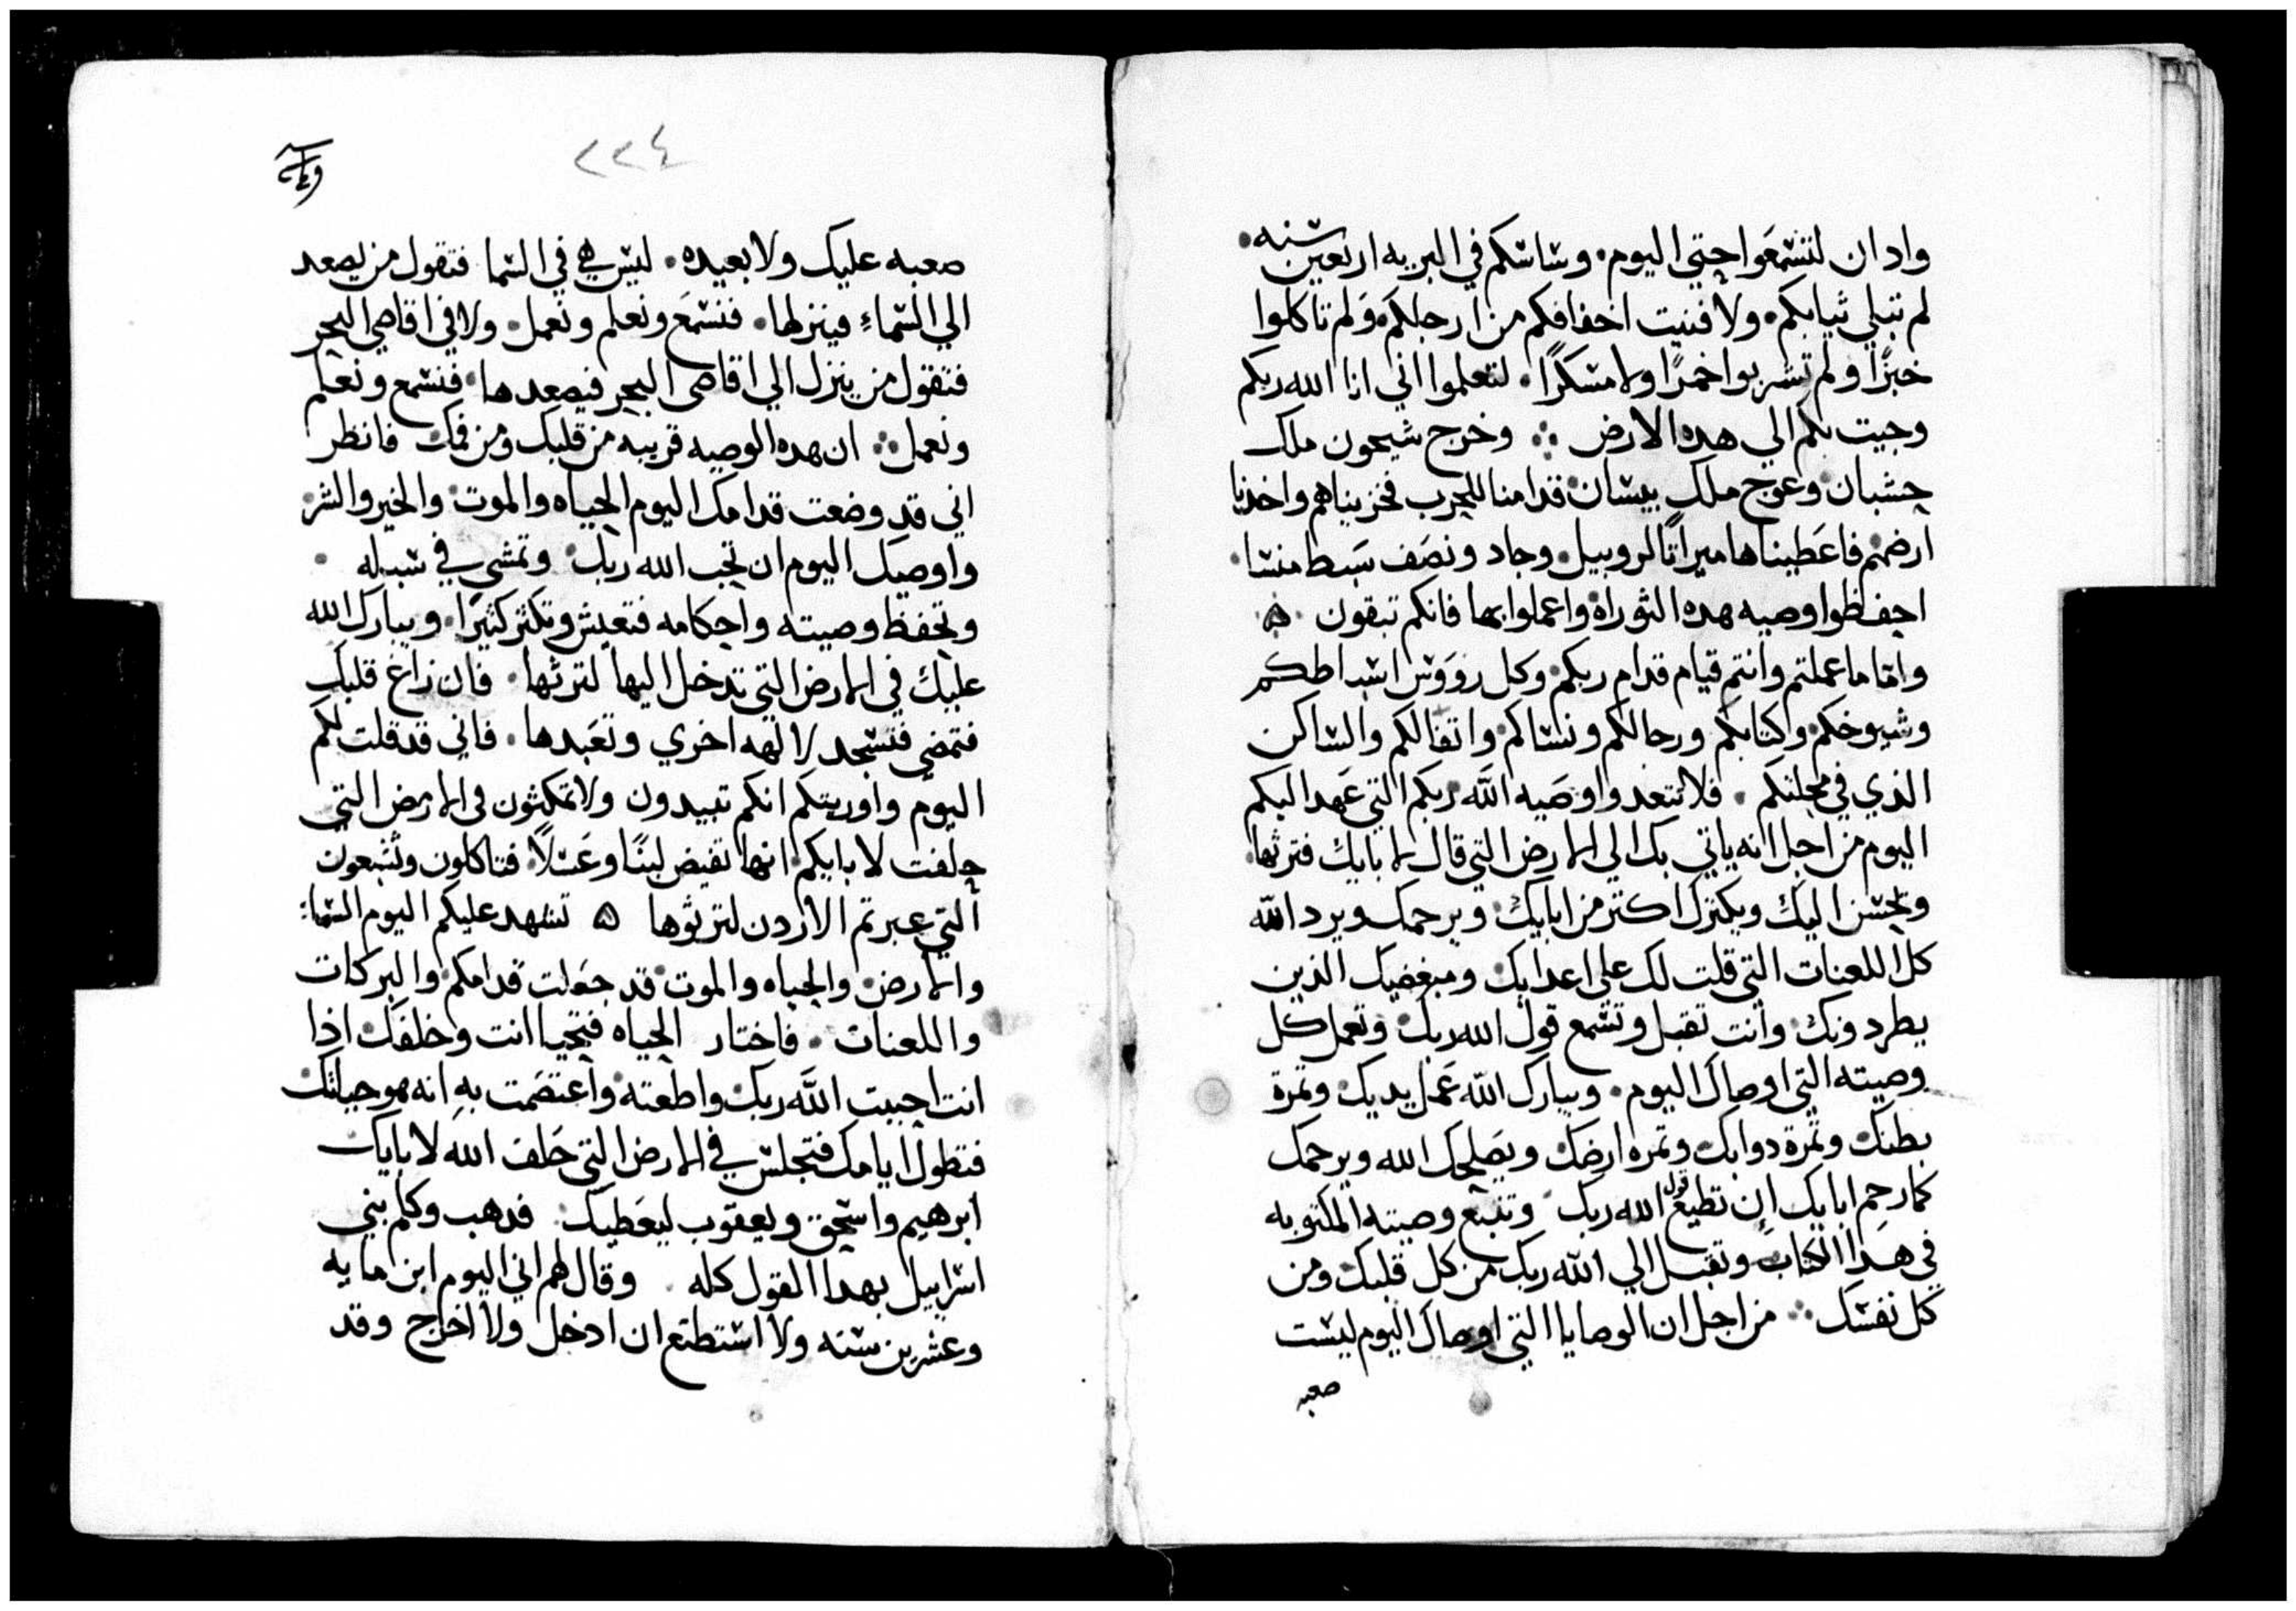 وادان لتسمعوا حتي اليوم. وساسكم في البريه اربعين سنه.
لم تبلي ثيابكم. ولا فنيت اخفافكم من ارجلكم. ولم تاكلوا
خبزًا ولم تشربوا خمرًا ولا مسكرًا. لتعلموا اني انا الله ربكم
وجيت بكم الي هده الارض ∴ وخرج سيحون ملك
حسبان وعوج ملك بيسان قدامنا للحرب فخربناهم واخدنا
ارضهم فاعطيناها ميراثًا لروبيل. وجاد ونصف سبط منسا.
احفظوا وصيه هده التوراة واعملوا بها فانكم تبقون ه
واما ما عملتم وانتم قيام قدام ربكم. وكل رووس اسباطكم
وشيوخكم وكتابكم ورجالكم ونساكم. واتقالكم والساكن
الذي في محلتكم. فلا تتعدوا وصيه الله ربكم التي عهد اليكم
اليوم من اجل انه ياتي بك الي الارض التي قال لابايك فترثها.
ويحسن اليك ويكترك اكتر من ابايك. ويرحمك ويرد الله
كل اللعنات التي قلت لك علي اعدايك ومبغضيك الذين
يطردونك وانت تقبل وتسمع قول الله ربك وتعمل كل
وصيته التي اوصاك اليوم. ويبارك الله عمل يديك وتمرة
بطنك وتمرة دوابك وتمره ارضك ويصلحك الله ويرحمك
كما رحم ابايك ان تطيع قول الله ربك وتتبع وصيته المكتوبه
في هدا الكتاب وتقبل الي الله ربك من كل قلبك ومن
كل نفسك ∴ من اجل ان الوصايا التي اوصاك اليوم ليست
صعبه
٢٢٤
صعبه عليك ولا بعيده. ليس هي في السما فتقول من يصعد
الي السماء فينزلها. فنسمع ونعلم ونعمل. ولا في اقاصي البحر
فتقول من ينزل الي اقاصي البحر فيصعدها. فنسمع ونعلم
ونعمل ∴ ان هده الوصيه قريبه من قلبك ومن فمك فانظر
اني قد وضعت قدامك اليوم الحياه والموت والخير والشر
واوصيك اليوم ان تحب الله ربك وتمشي في سبله.
وتحفظ وصيته واحكامه فتعيش وتكثر كثيرًا. ويبارك الله
عليك في الارض التي تدخل اليها لترثها. فان زاغ قلبك
فتمضي فتسجد لالهه اخري وتعبدها. فاني قد قلت لكم
اليوم واوريتكم انكم تبيدون ولا تمكثون في الارض التي
حلفت لابايكم انها تفيض لبنًا وعسلًا. فتاكلون وتشبعون
التي عبرتم الاردن لترثوها ه تشهد عليكم اليوم السماء
والارض والحياه والموت قد جعلت قدامكم والبركات
واللعنات. فاختار الحياه فتحيا انت وخلفك اذا
انت احببت الله ربك واطعته واعتصمت به انه هو حياتك
فتطول ايامك فتجلس في الارض التي حلف الله لابايك
ابرهيم واسحق ويعقوب ليعطيك فدهب وكلم بني
اسراييل بهدا القول كله. وقال لهم اني اليوم ابن مايه
وعشرين سنه ولا استطتع ان ادخل ولا اخرج وقد